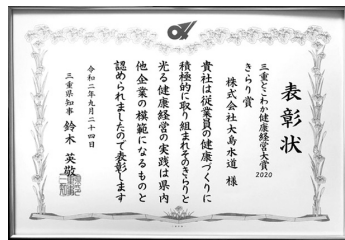 表彰状
三重とこわか健康経営大賞2020
きらり賞
株式会社大島水道 様
貴社は従業員の健康づくりに
積極的に取り組まれそのきらりと
光る健康経営の実践は県内
他企業の模範になるものと
認められましたので表彰します
令和二年九月二十四日
三重県知事 鈴木英敬